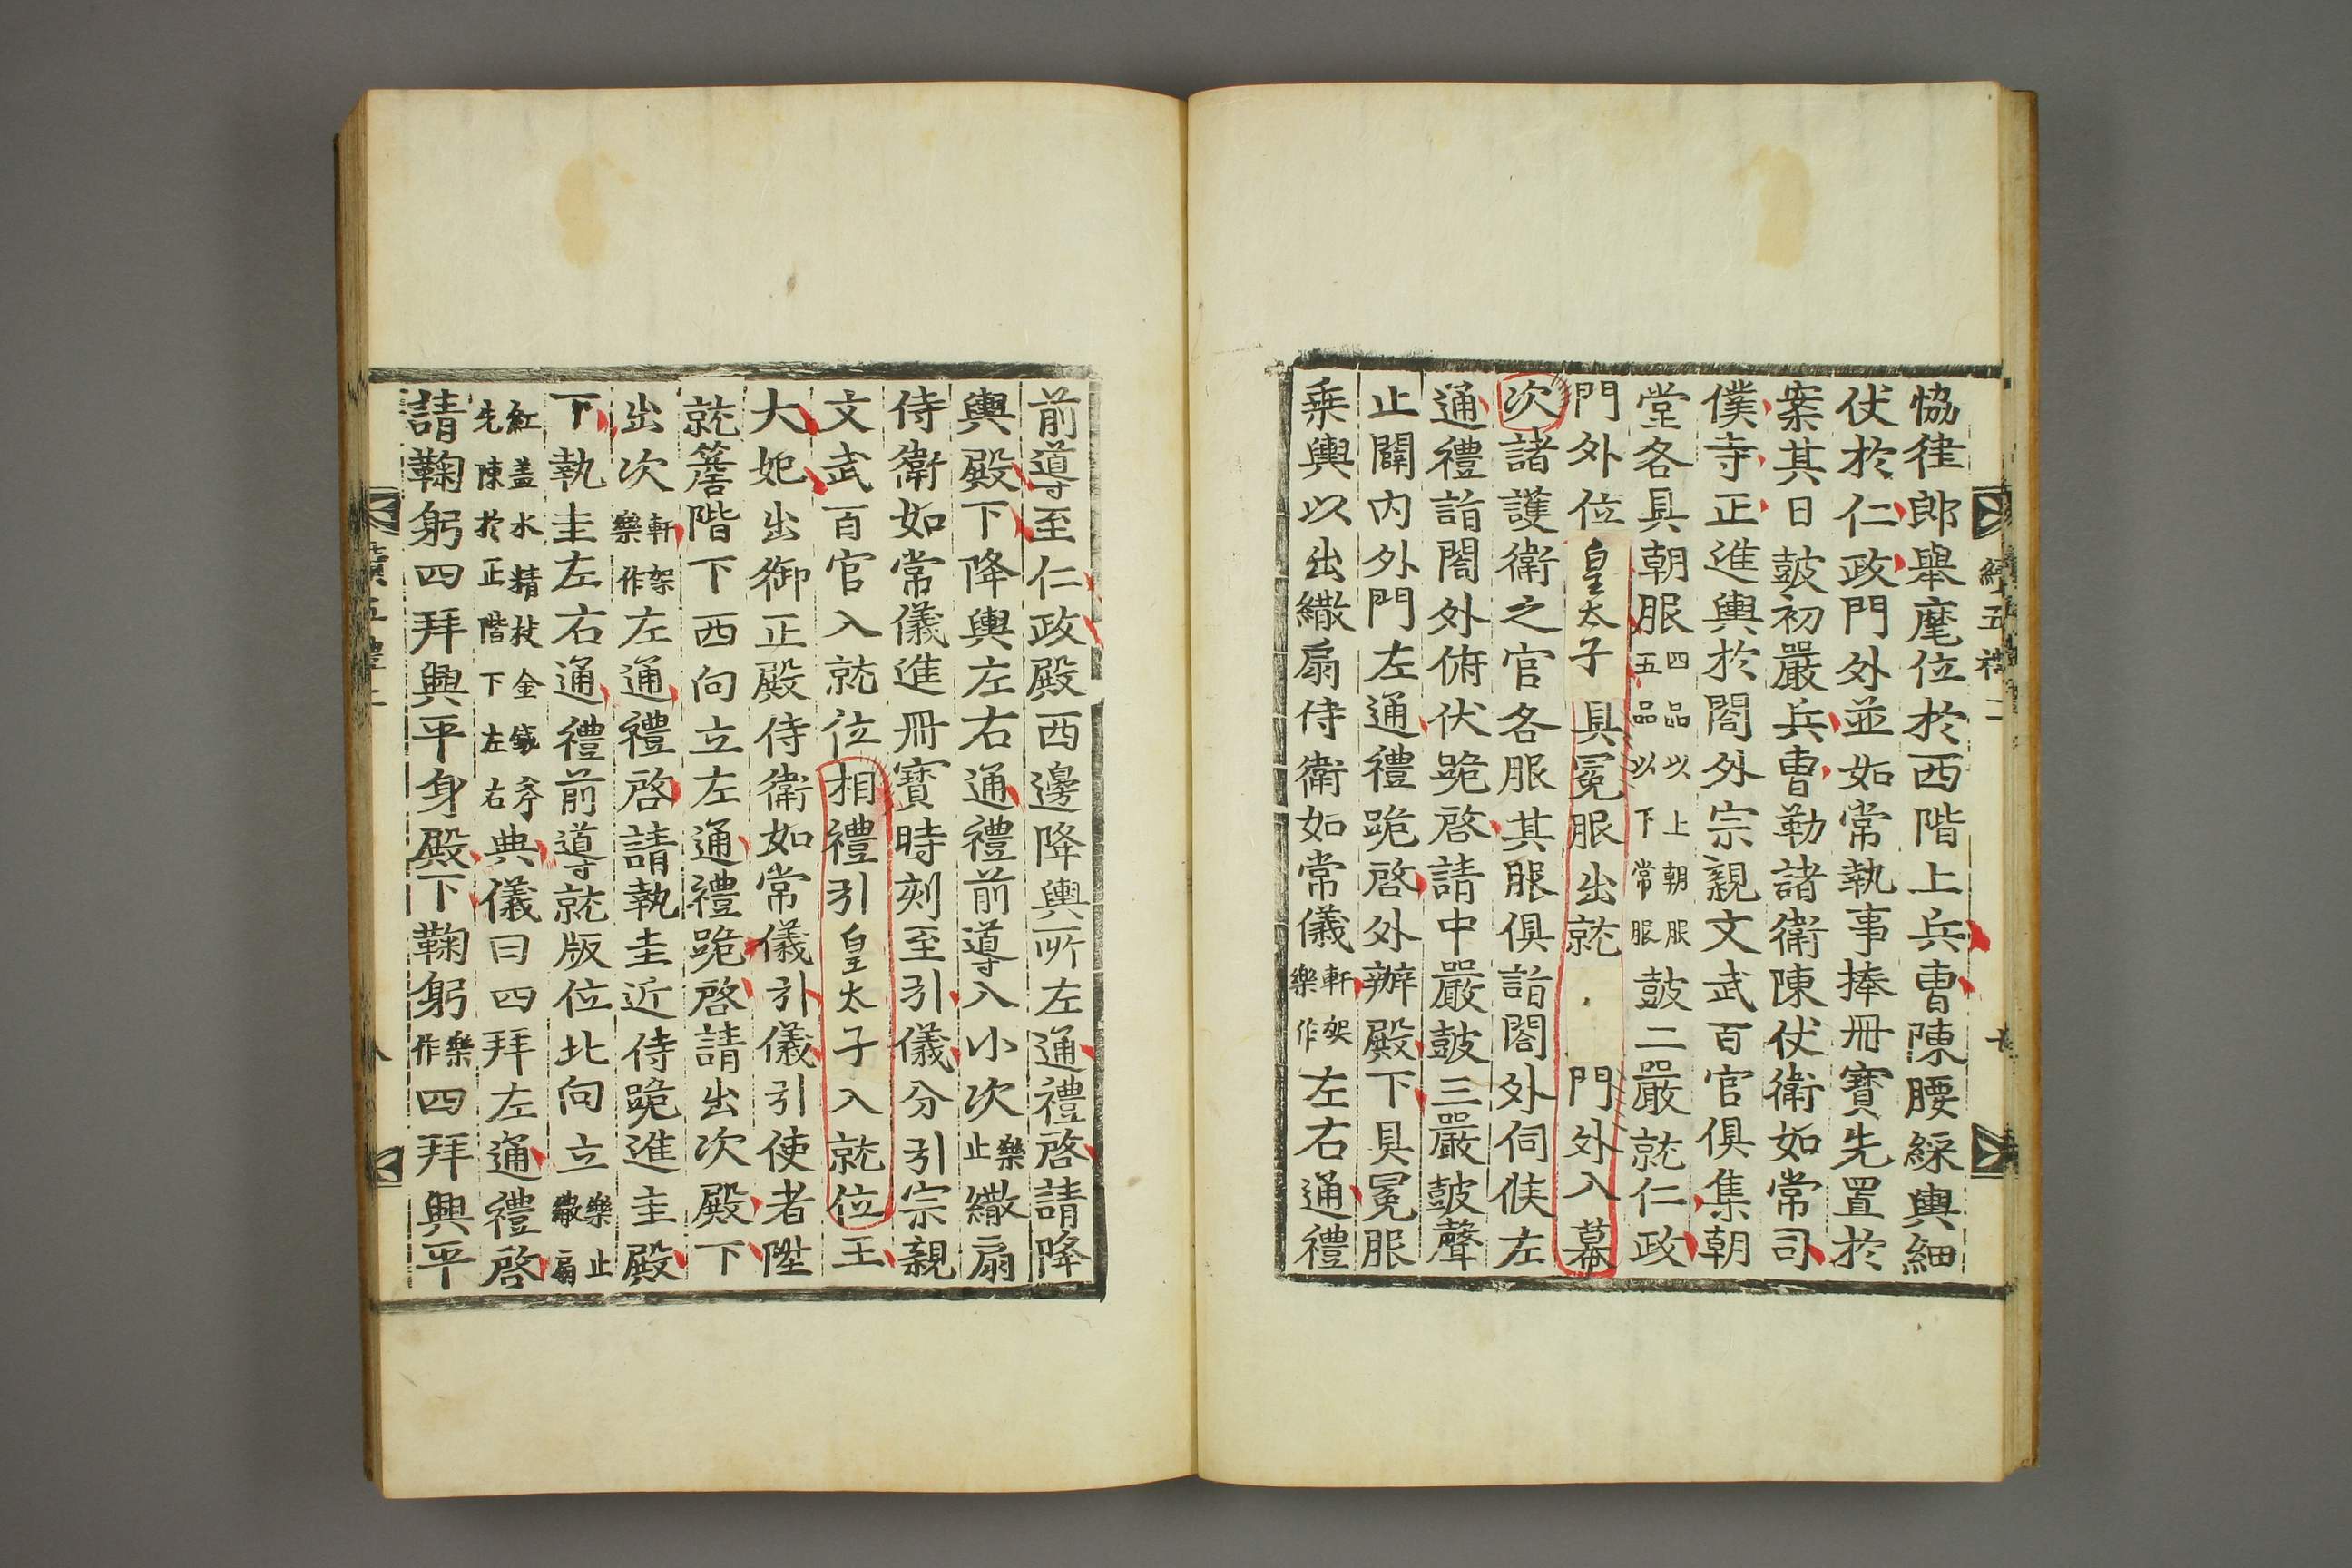 協律郎舉麾位於西階上兵曹陳腰綵輿細
仗於仁政門外並如常執事捧冊寶先置於
案其日鼓初嚴兵曹勒諸衛陳仗衛如常司
僕寺正進輿於閤外宗親文武百官俱集朝
堂各具朝服四品以上朝服五品以下常服鼓二嚴就仁政
門外位皇太子具冕服出就門外入幕
次諸護衛之官各服其服俱詣閤外伺候左
通禮詣閤外俯伏跪啓請中嚴鼓三嚴鼓聲
止闢內外門左通禮跪啓外辦殿下具冕服
乘輿以出繖扇侍衛如常儀軒架樂作左右通禮
前導至仁政殿西邊降輿所左通禮啓請降
輿殿下降輿左右通禮前導入小次樂止繖扇
侍衛如常儀進冊寶時刻至引儀分引宗親
文武百官入就位相禮引皇太子入就位王
大妃出御正殿侍衛如常儀引儀引使者陞
就簷階下西向立左通禮跪啓請出次殿下
出次軒架樂作左通禮啓請執圭近侍跪進圭殿
下執圭左右通禮前導就版位北向立樂止繖扇
紅蓋水精杖金鉞斧先陳於正階下左右典儀曰四拜左通禮啓
請鞠躬四拜興平身殿下鞠躬樂作四拜興平